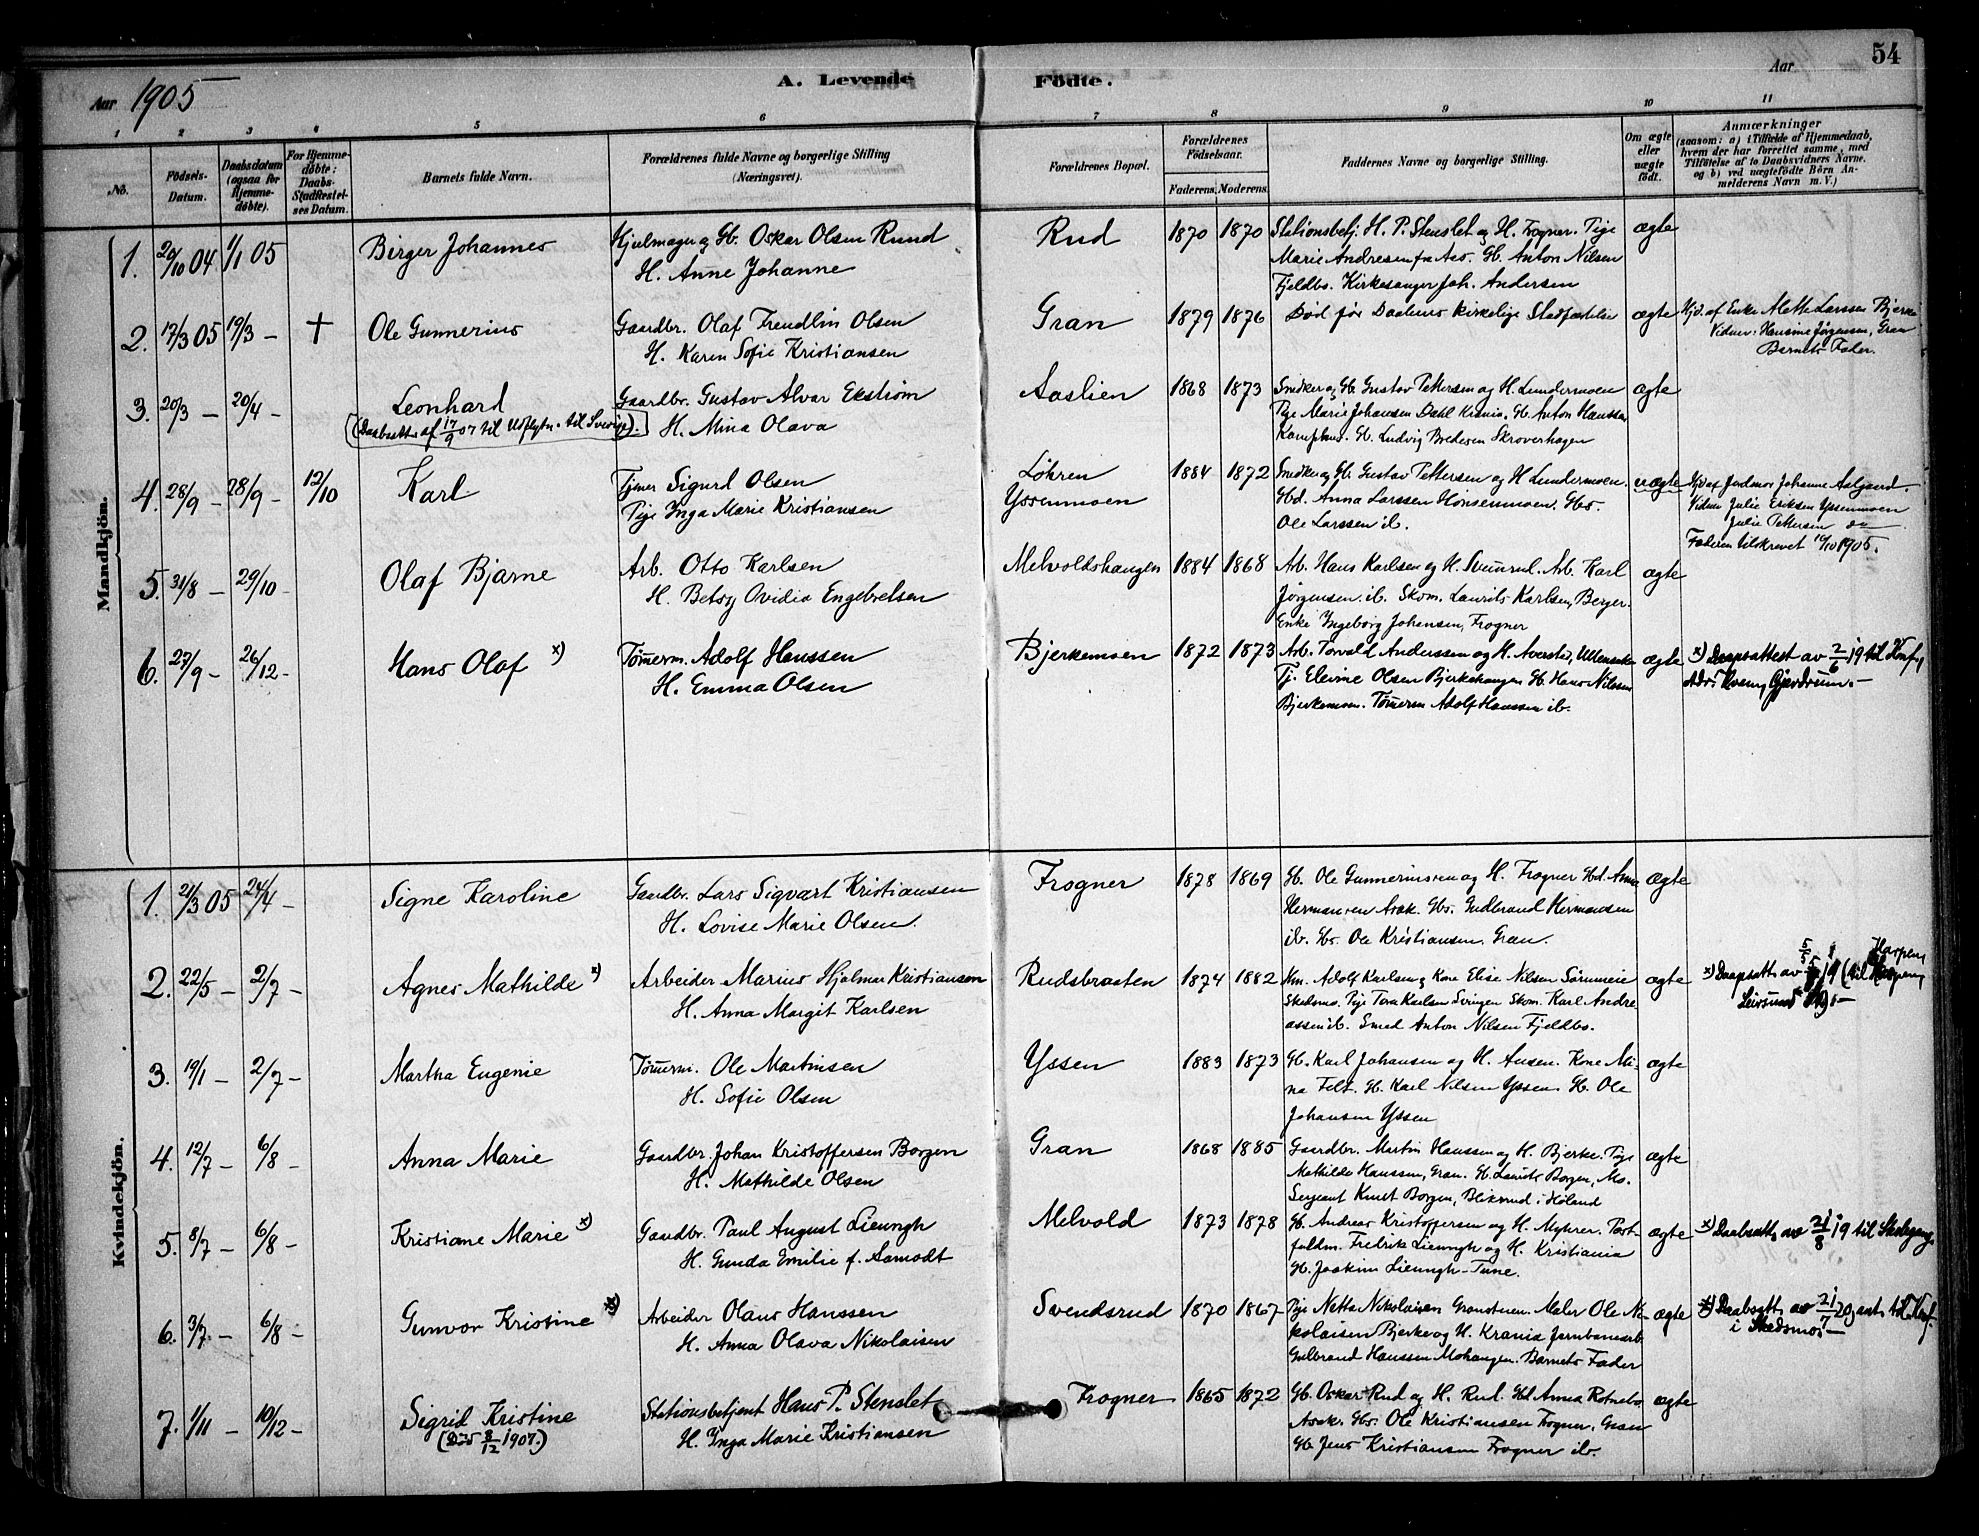 54
Aar 1905
A. Levende Födte.
Aar
1 2 3 4 5 6 7 8 9 10 11
No.
Födsels-Datum.
Daabsdatum (ogsaa for Hjemme-döbte).
For Hjemme-döbte: Daabs-Stadfæstel-ses Datum.
Barnets fulde Navn.
Forældrenes fulde Navne og borgerlige Stilling (Næringsvei).
Forældrenes Bopæl.
Forældrenes Födselsaar.
Faderens. Moderens.
Faddernes Navne og borgerlige Stilling.
Om ægte eller uægte födt.
Anmærkninger
(saasom: a) i Tilfælde af Hjemmedaab, hvem der har forrettet samme, med Tilföielse af to Daabsvidners Navne. og b) ved uægtefödte Börn An-melderens Navn m. V.)
Mandkjön.
1. 20/10 04 1/1 05 Birger Johannes Hjulmager og Gb. Oskar Olsen Ruud Rud 1870 1870 Stationsbetj. H. P. Stenslet og H. Frogner. Pige ægte
H. Anne Johanne Marie Andresen fra Aas. Gb. Anton Nilsen
Fjeldbo. Kirkesanger Joh. Andersen
2. 17/3 05 19/3 – † Ole Gunnerius Gaardbr. Olaf Trendlin Olsen Gran 1879 1876 Död før Daabens kirkelige Stadfæstelse ægte Hjd. af Enke Mette Larssen Bjerke
H. Karen Sofie Kristiansen Vidner: Hansine Jørgensen, Gran
Barnets Fader.
3. 20/3 – 20/4 – Leonhard Gaardbr. Gustav Alvar Ekström Aaslien 1868 1873 Snedker og Gb. Gustav Pettersen og H. Lundermoen ægte
(Daabsatts. af 17/9 07 til Udflytn. til Sverige). H. Mina Olava Pige Marie Johansen Dahl Krania. Gb. Anton Hanssen
Gb. Ludvig Bredesen Skroverhagen
4. 28/9 – 28/9 – 12/10 Karl Tjener Sigurd Olsen Løkren 1884 1872 Snedker og Gb. Gustav Pettersen og H. Lundermoen. uægte Hjd. af Jordmor Johanne Aalgaard.
Pige Inga Marie Kristiansen Yssenmoen Gbd. Anna Larssen Hønsenmoen. Gbs. Vidner Julie Eriksen Yssenmoen
Ole Larssen ib. Julie Pettersen do
Faderen tilskrevet 10/10 1905.
5. 31/8 – 29/10 – Olaf Bjarne Arb. Otto Karlsen Melvoldshaugen 1884 1868 Arb. Hans Karlsen og H. Arb. Karl ægte
H. Betsy Ovidia Engebretsen Jørgensen. ib. Skom. Laurits Karlsen, Berger.
Enke Ingeborg Johansen, Frogner
6. 27/9 – 26/12 – Hans Olaf x) Tömerm. Adolf Hanssen Bjerkemoen 1872 1873 Arb. Torvald Anderssen og H. Ullensaker ægte x) Daapsattest av 2/6 19 til Konf.
H. Emma Olsen Tj. Elevine Olsen Bjerkehaugen Gb. Hans Nilssen Adr: Gjerdrum. –
Bjerkemoen. Tömerm Adolf Hanssen ib.
Kvindekjön.
1. 21/3 05 24/4 – Signe Karoline Gaardbr. Lars Sigvart Kristiansen Frogner 1878 1869 Gb. Ole Gunneriussen og H. Frogner Gbd. Anna ægte
H. Lovise Marie Olsen. Hermansen Asak. Gbs. Gudbrand Hermansen
ib. Gbs. Ole Kristiansen, Gran.
2. 22/5 – 2/7 – Agnes Mathilde x) Arbeider Marius Hjalmar Kristiansen Rudsbraaten 1874 1882 Adolf Karlsen og Kone Elise Nilsen ægte x) Daapsatts av 5/5 19 (til
H. Anna Margit Karlsen Skedsmo. Pige Tora Karlsen Svingen Skom. Karl Andre- Leirsund
assen ib. Smed Anton Nilsen Fjeldbo.
3. 19/1 – 2/7 – Martha Eugenie Tömerm. Ole Martinsen Yssen 1883 1873 Gb. Karl Johansen og H. Kone Mi- ægte
H. Sofie Olsen na Felt. Gb. Karl Nilsen Yssen. Gb. Ole
Johansen Yssen
4. 12/7 – 6/8 – Anna Marie Gaardbr. Johan Kristoffersen Borgen Gran 1868 1885 Gaardbr. Martin Hanssen og H. Bjerke. Pige ægte
H. Mathilde Olsen Mathilde Hanssen, Gran. Gb. Laurits Borgen,
Sergeant Knut Borgen, Bliksrud i Høland
5. 8/7 – 6/8 – Kristiane Marie x) Gaardbr. Paul August Lieungh Melvold 1873 1878 Gb. Andreas Kristoffersen og H. Myhrer. Post- ægte x) Daabsatts av 21/8 19 til Skolegang.
H. Gunda Emilie f. Aamodt fuldm. Fredrik Lieungh og H. Kristiania
Gb. Joakim Lieungh – Tune.
6. 3/7. – 6/8 – Gunvor Kristine x) Arbeider Olaus Hanssen Svendsrud 1870 1867 Pige Netta Nikolaisen Maler Ole Ni- ægte x) Daabsatts av 21/7 20 til Konf.
H. Anna Olava Nikolaisen kolaisen Bjerke og H. Krania Jernbanearb i Skedsmo –
Gulbrand Hanssen Mohaugen. Barnets Fader
7. 1/11 – 10/12 – Sigrid Kristine Stationsbetjent Hans P. Stenslet Frogner 1865 1872 Gb. Oskar Rud og H. Rud. Gbd Anna Rotnebo ægte
(Död 8/12 1907.) H. Inga Marie Kristiansen Asak. Gbs. Ole Kristiansen Frogner, Gran
Gb Jens Kristiansen Frogner ib.